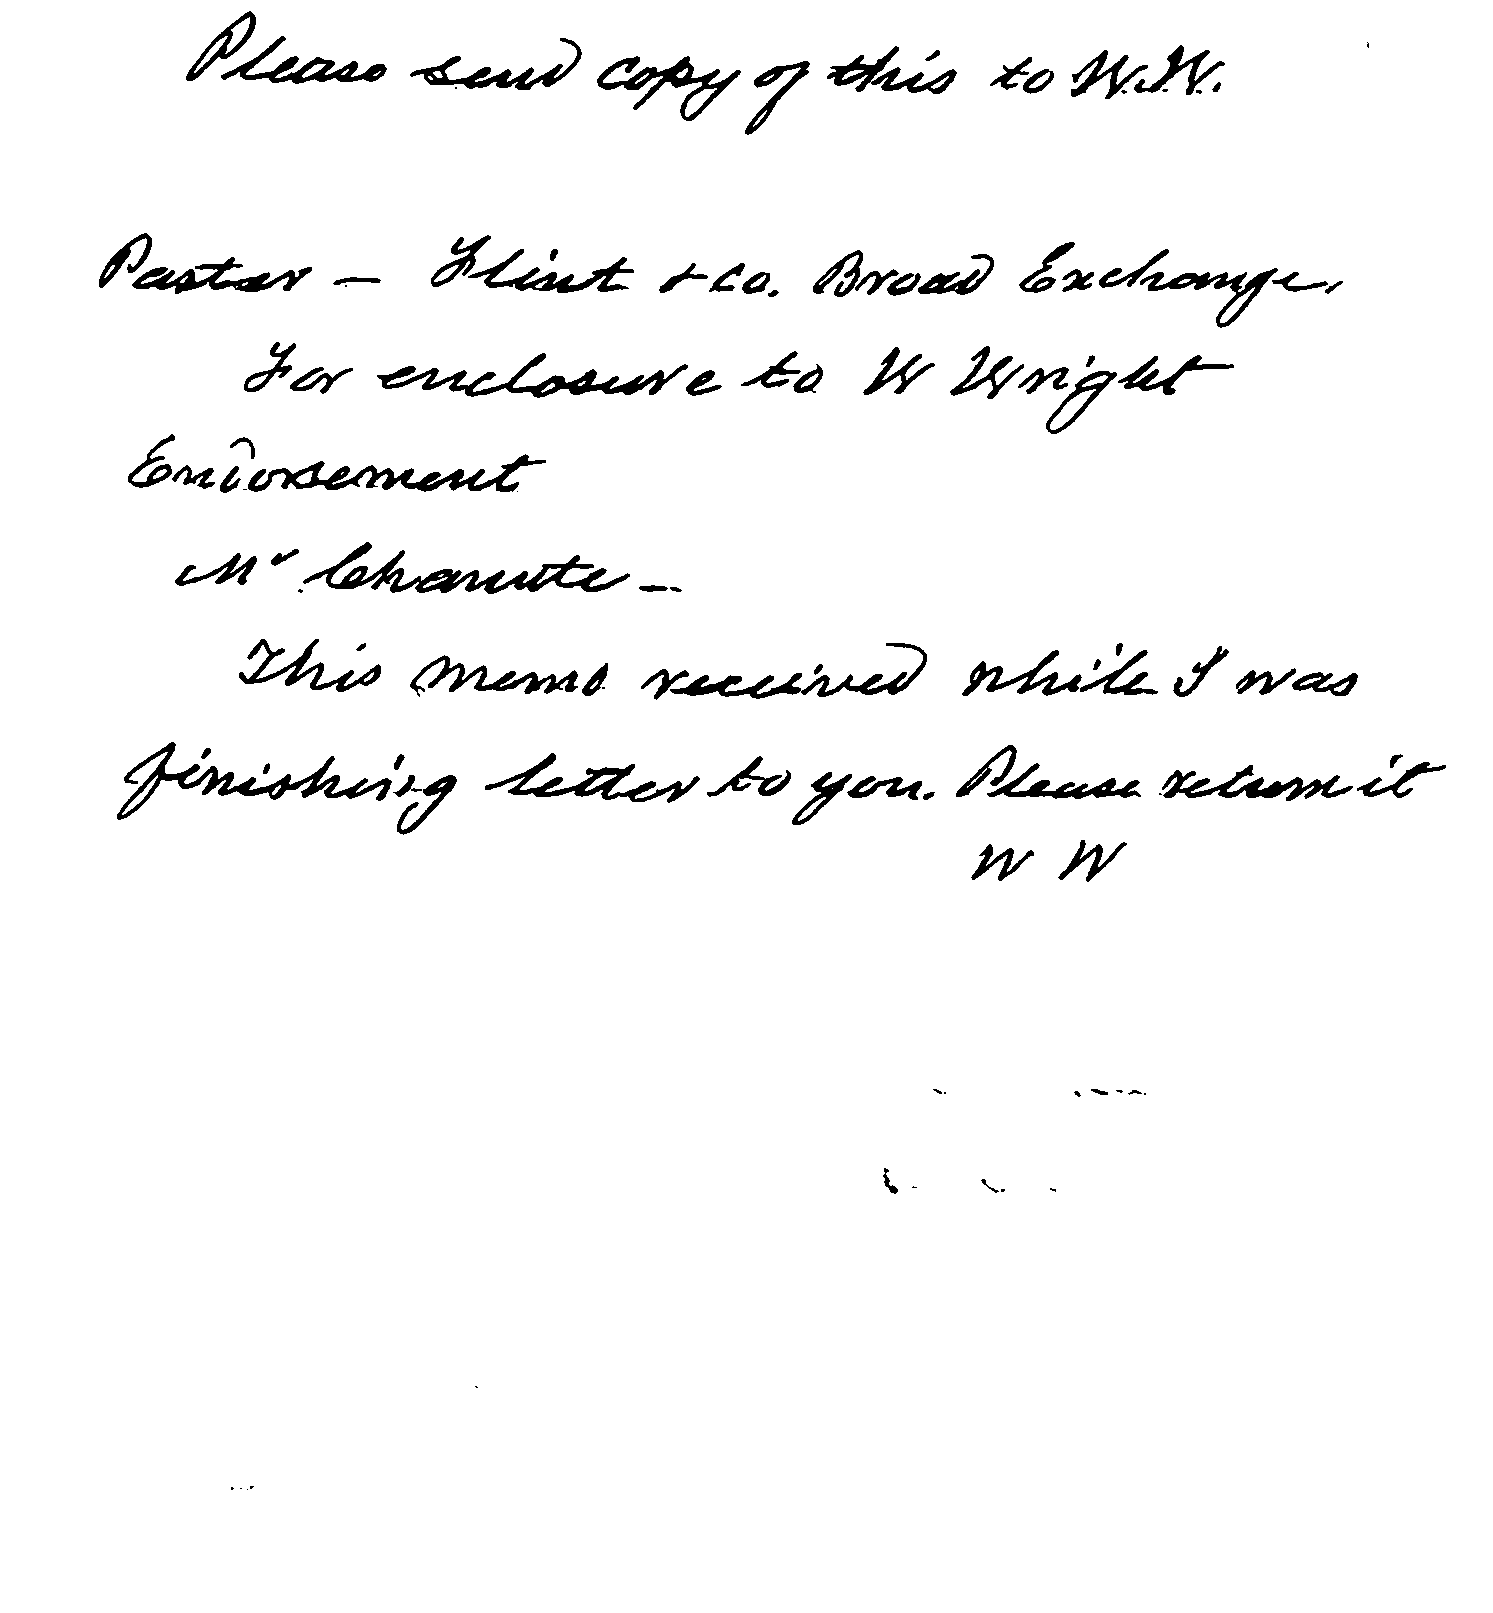 Please send copy of this to W.W.
Paster – Flint & Co. Broad Exchange,
For enclosure to W Wright
Endorsement
Mr Chanute –
This memo received while I was
finishing letter to you. Please return it
W W